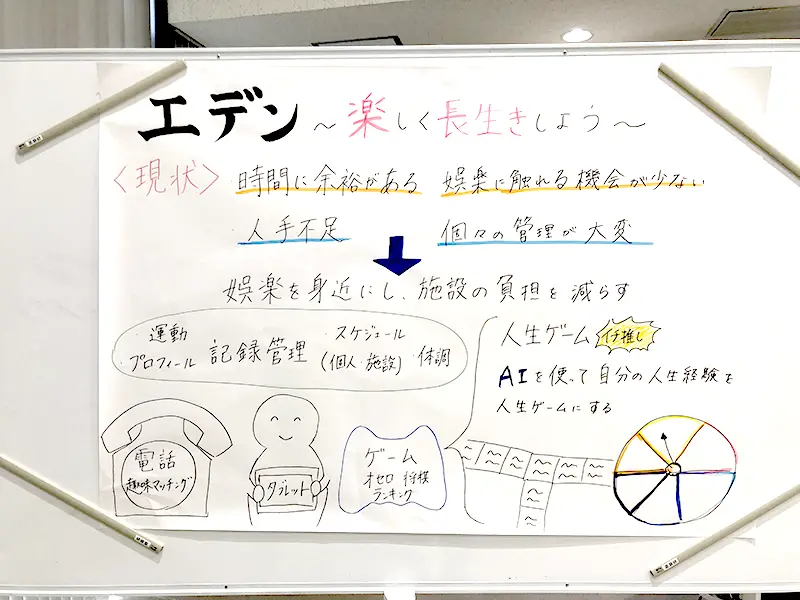 エデン ～楽しく長生きしよう～
〈現状〉 ・時間に余裕がある ・娯楽に触れる機会が少ない
・人手不足 ・個々の管理が大変
娯楽を身近にし、施設の負担を減らす
・運動 ・スケジュール
・プロフィール 記録管理 (個人・施設) ・体調
人生ゲーム イチ推し
AIを使って自分の人生経験を
人生ゲームにする
電話
趣味マッチング
タブレット
ゲーム
オセロ 将棋
ランキング